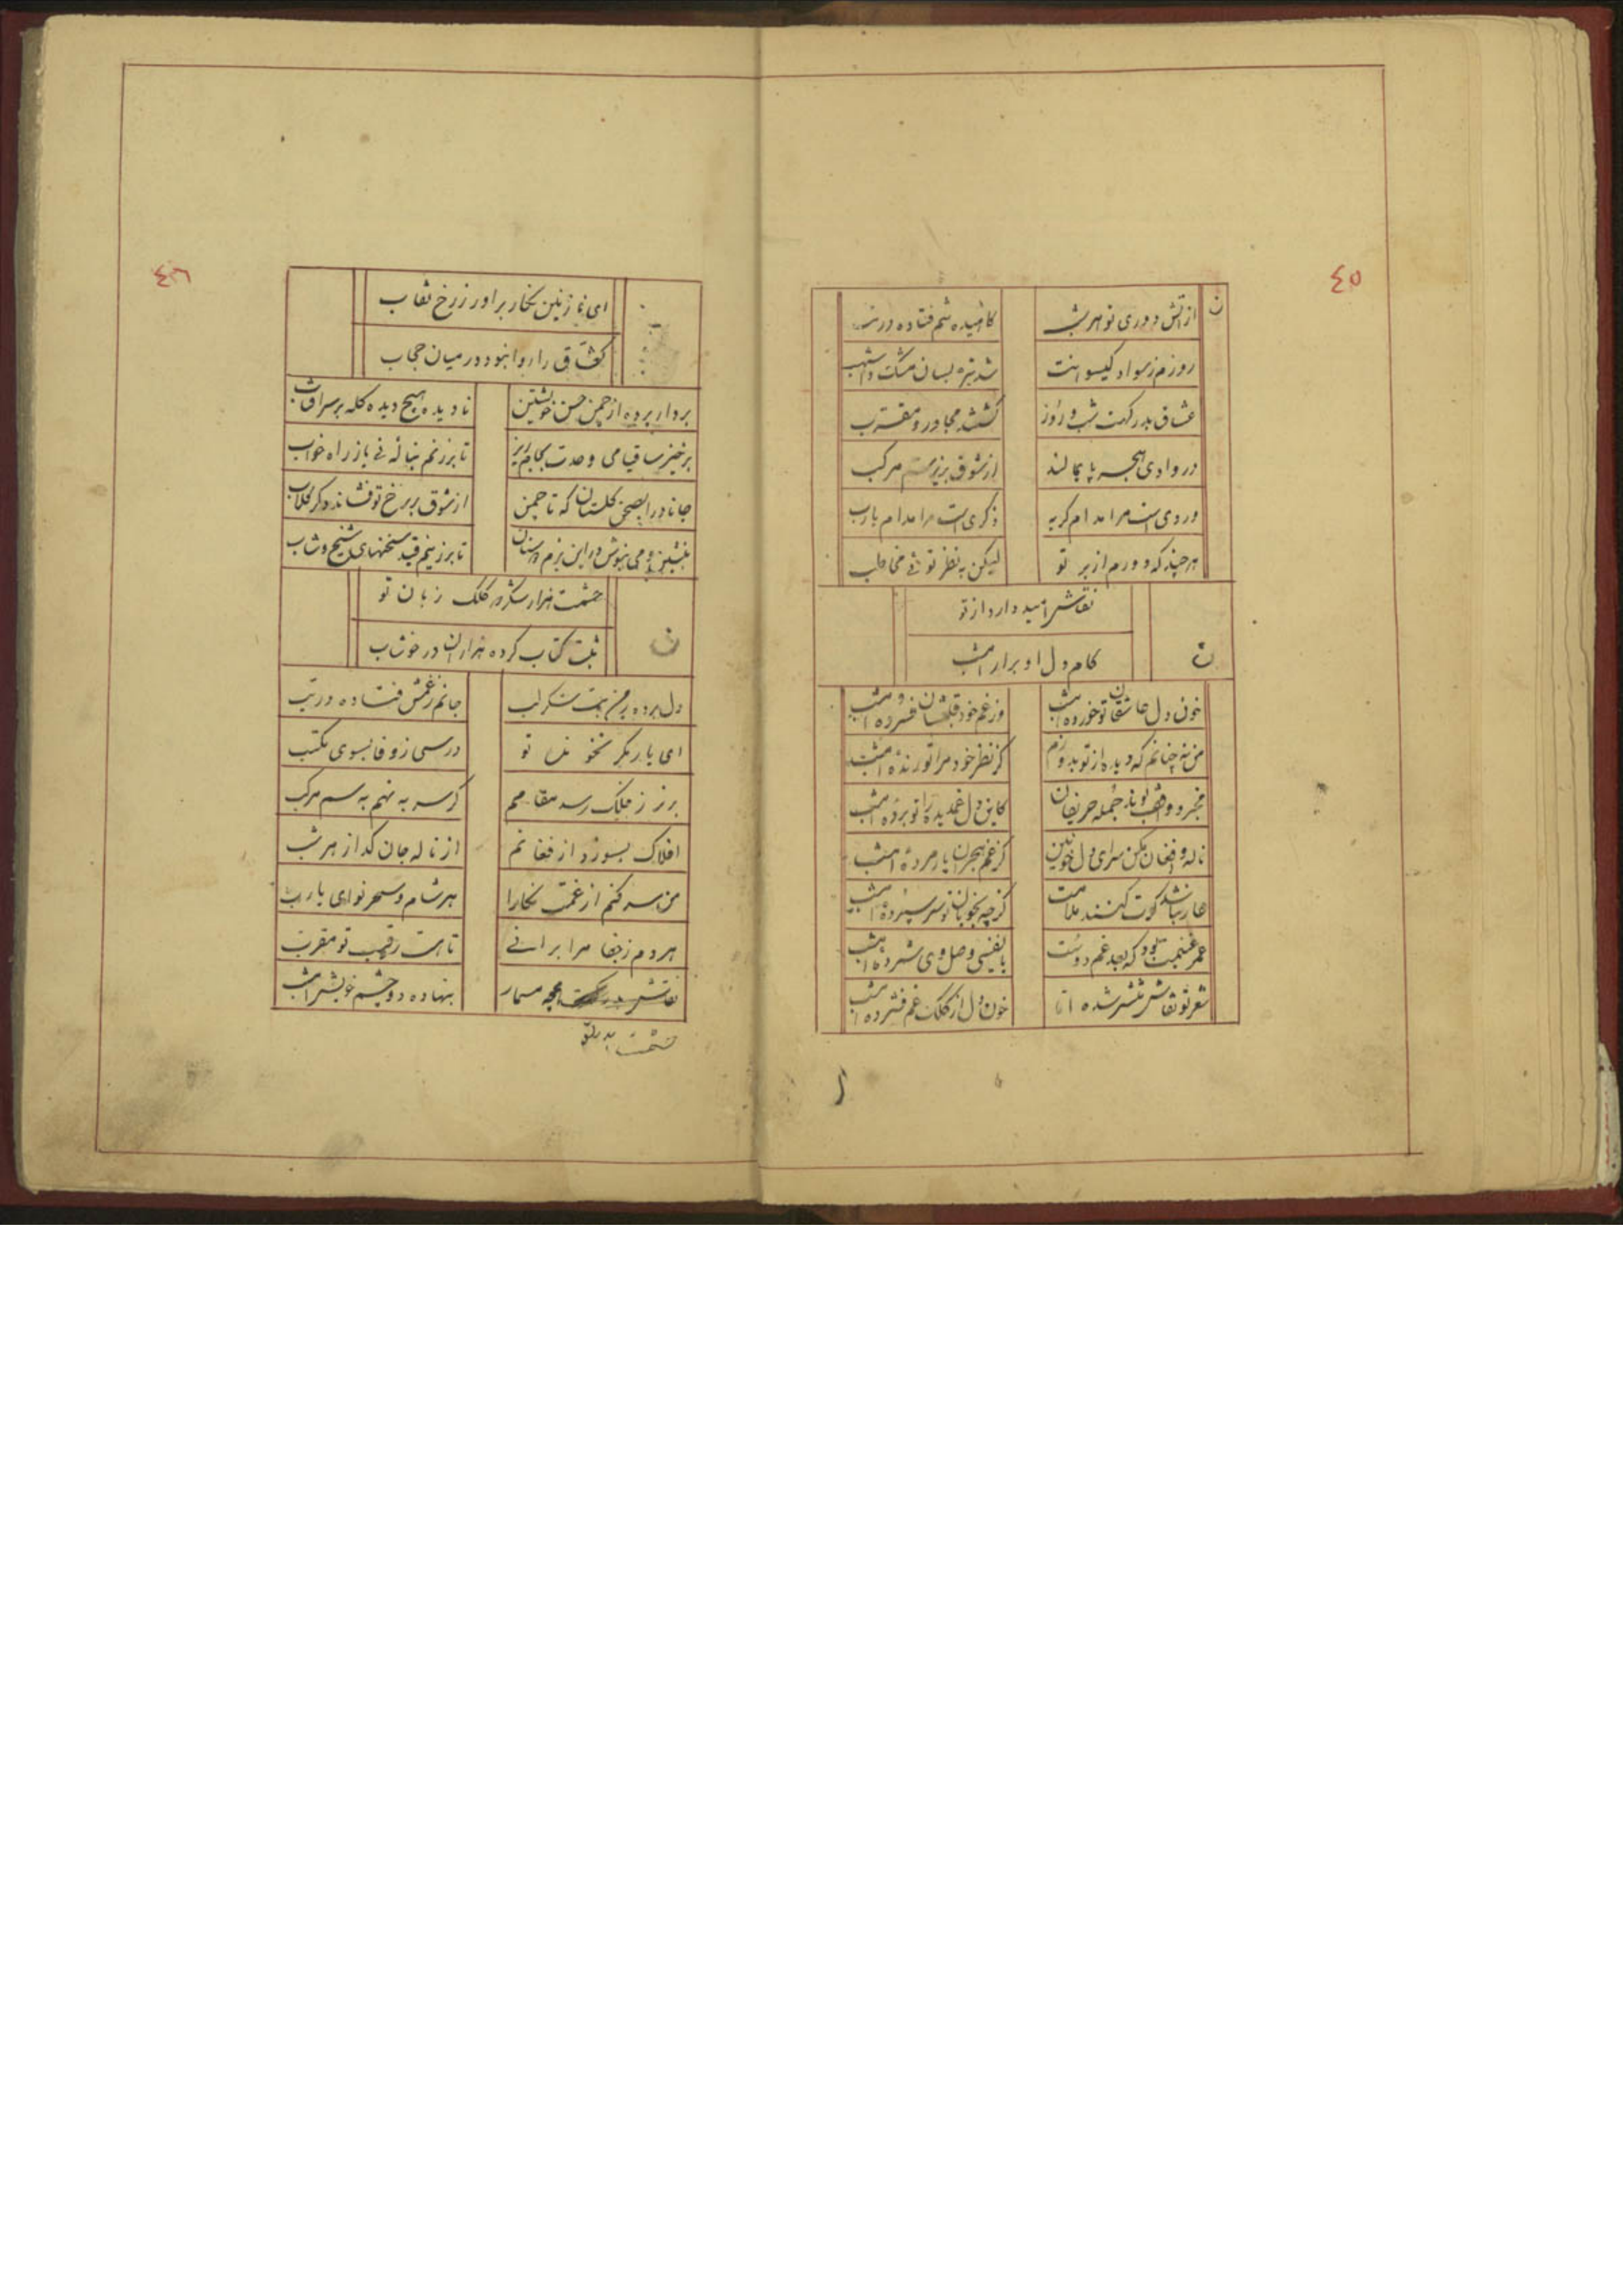 ٤٥
از آتش دوری تو هر شب
کاهیده تنم فتاده در تب
روزم ز سواد کیسوانت
شد تیره بسان مشک و اشهب
عشاق بدرکهت شب و روز
کشته مجاور و مقرب
در وادی هجر پا بمالند
از شوق بزیر سم مرکب
وردی است مرا مدام کریه
ذکری است مرا مدام یارب
هرچند که دورم از بر تو
لیکن به نظر توئی مخاطب
نقاش امید دارد از تو
کام دل او برار امشب
ن
خون دل عاشقان تو خورده امشب
وز غم خود قلبشان فسرده امشب
من نه چنانم که دیده از تو بدوزم
کز نظر خود مرا تو رنده امشب
جمله حریفان
کاین دل غمدیده را تو برده امشب
ناله و افغان مکن سرای دل خونین
کز غم هجران یار مرده امشب
عار نباشد کرت کنند ملامت
کرچه بخوبان تو سر سپرده امشب
عمر غنیمت بود که بعد غم دوست
با نفسی وصل وی شمرده امشب
شعر تو نقاش منتشر شده اما
خون دل از کلک غم فشرده امشب
٤٦
ای نازنین نکار براور ز رخ نقاب
عشاق را روا نبود در میان حجاب
بردار پرده از چمن حسن خویشتن
نادیده هیچ دیده کله بر سر افتاب
برخیز ساقیا می وحدت بجام ریز
تا برزنم نباله نی باز راه خواب
جانا درا بصحن کلستان که تا چمن
از شوق بر رخ تو فشاند دکر کلاب
بنشین و می بنوش در این بزم دوستان
تا برزنیم قید سخنهای شیخ و شاب
حشمت هزار شکر که کلک زبان تو
ثبت کتاب کرده هزاران در خوشاب
ن
دل برده ز من بت شکر لب
جانم ز غمش فتاده در تب
ای یار مکر نخوانده تو
درسی ز وفا بسوی مکتب
برتر ز فلک رسد مقامم
کر سر به نهم به سم مرکب
افلاک بسوزد از فغانم
از ناله جان کداز هر شب
من سر کنم از غمت نکارا
هر شام و سحر نوای یارب
هر دم ز جفا مرا برانی
تا هست رقیب تو مقرب
نقاش
بنهاده دو چشم خویش امشب